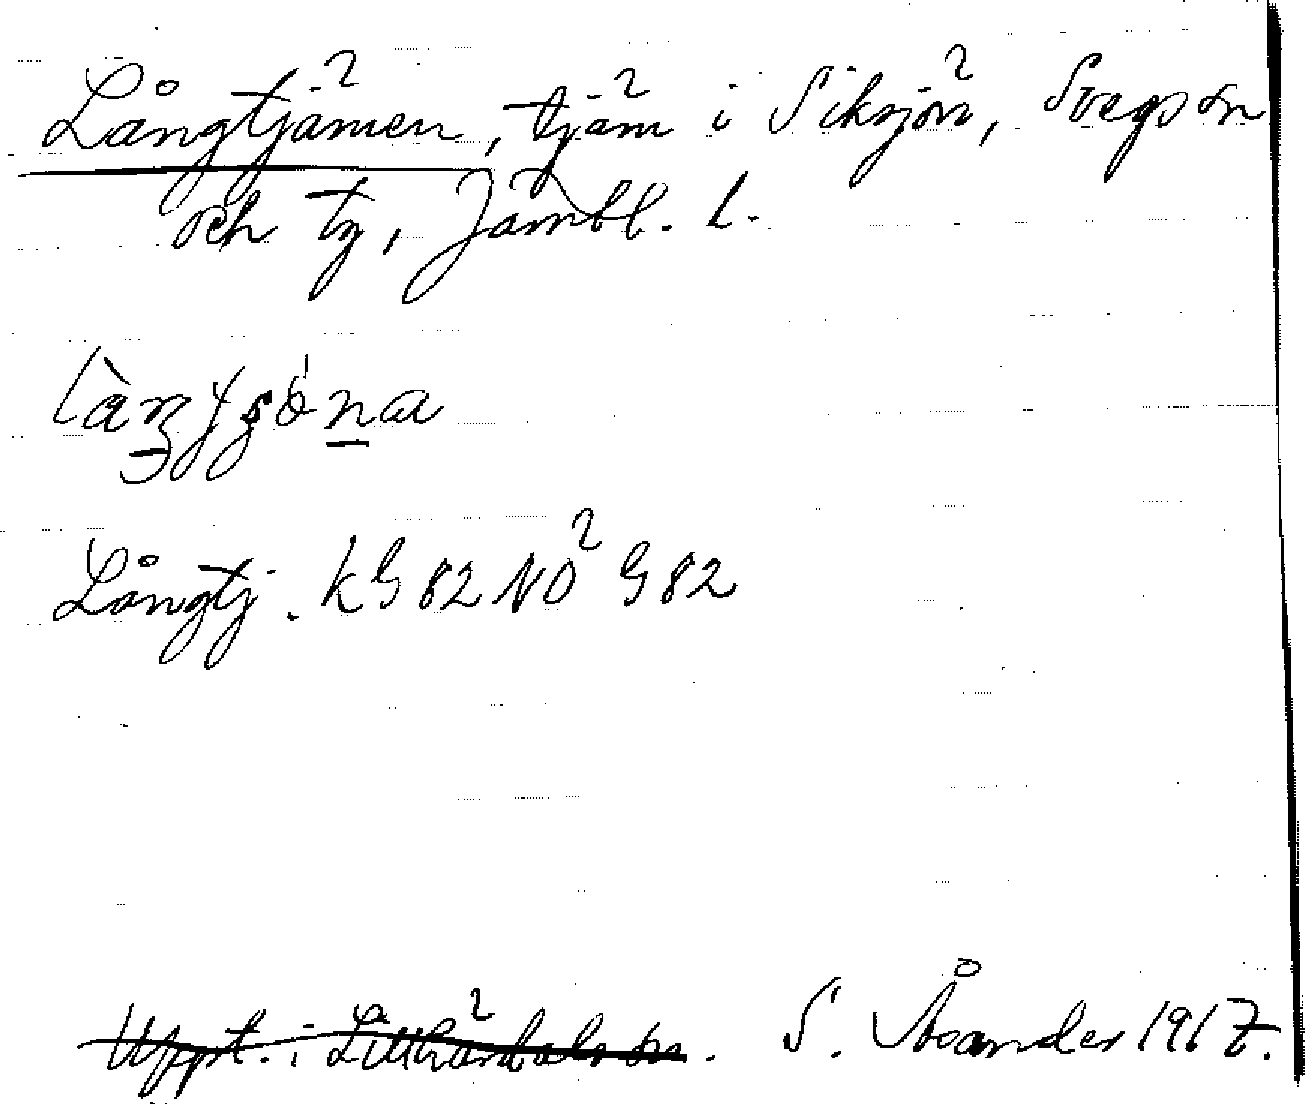 Långtjärnen, tjärn i Siksjön, Svegs sn
och tg, Jämtl. l.
Långtj. k G82 NO G82
Uppt. i Lillhärdals sn. S. Åsander 1967.